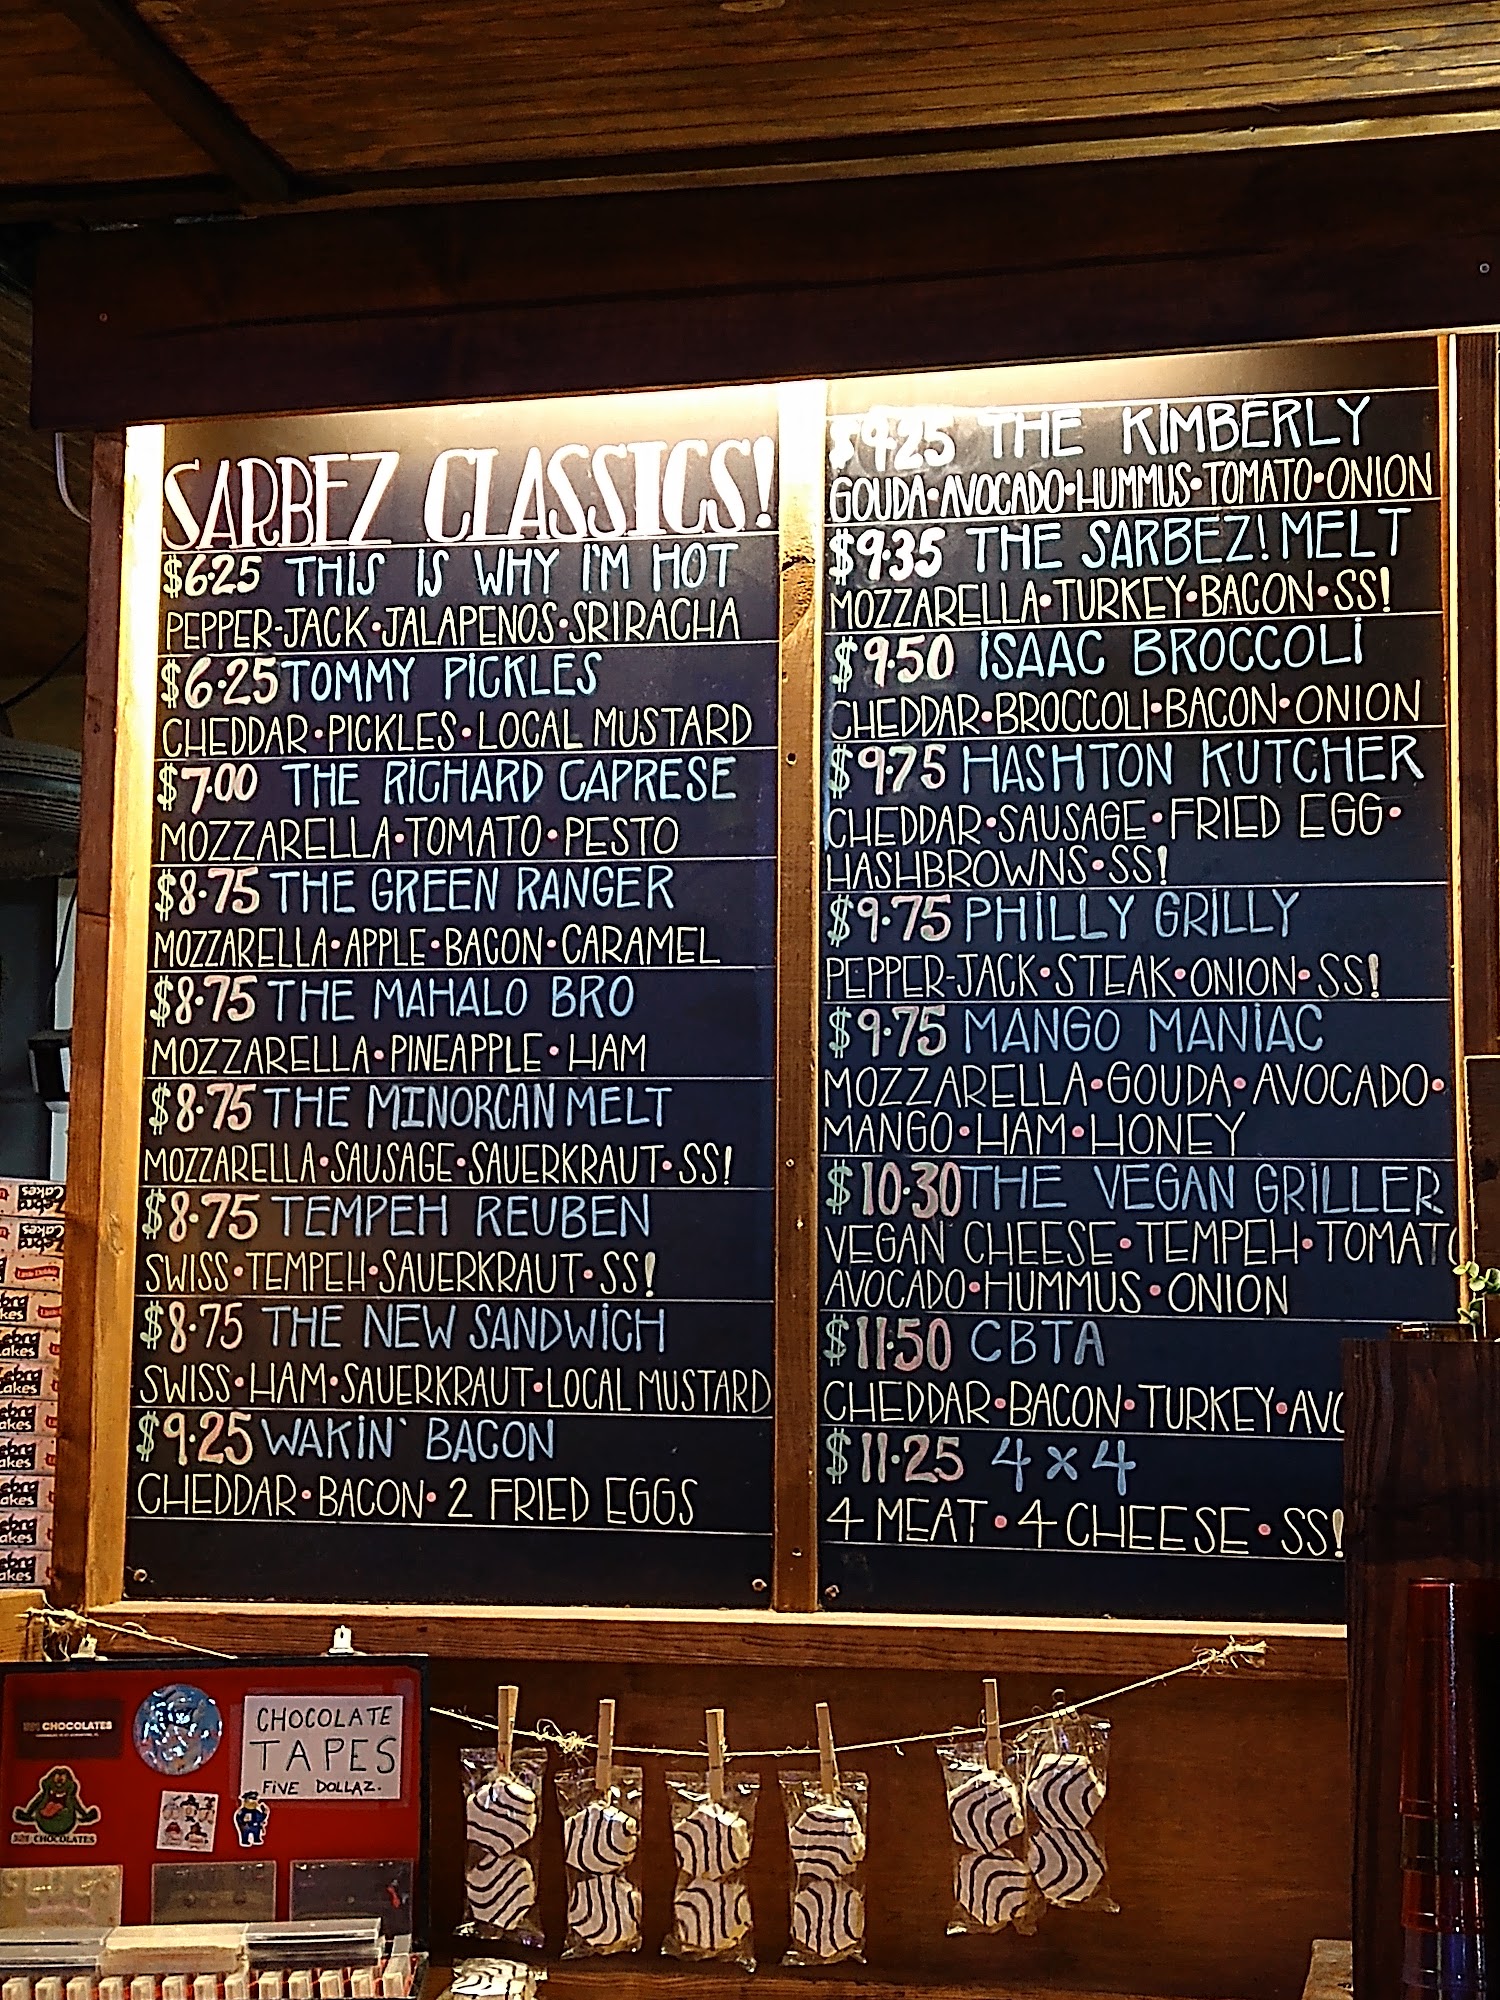 SARBEZ CLASSICS!
$6.25 THIS IS WHY I'M HOT
PEPPER-JACK•JALAPENOS•SRIRACHA
$6.25 TOMMY PICKLES
CHEDDAR•PICKLES•LOCAL MUSTARD
$7.00 THE RICHARD CAPRESE
MOZZARELLA•TOMATO•PESTO
$8.75 THE GREEN RANGER
MOZZARELLA•APPLE•BACON•CARAMEL
$8.75 THE MAHALO BRO
MOZZARELLA•PINEAPPLE•HAM
$8.75 THE MINORCAN MELT
MOZZARELLA•SAUSAGE•SAUERKRAUT•SS!
$8.75 TEMPEH REUBEN
SWISS•TEMPEH•SAUERKRAUT•SS!
$8.75 THE NEW SANDWICH
SWISS•HAM•SAUERKRAUT•LOCAL MUSTARD
$9.25 WAKIN' BACON
CHEDDAR•BACON•2 FRIED EGGS
$9.25 THE KIMBERLY
GOUDA•AVOCADO•HUMMUS•TOMATO•ONION
$9.35 THE SARBEZ! MELT
MOZZARELLA•TURKEY•BACON•SS!
$9.50 ISAAC BROCCOLI
CHEDDAR•BROCCOLI•BACON•ONION
$9.75 HASHTON KUTCHER
CHEDDAR•SAUSAGE•FRIED EGG•
HASHBROWNS•SS!
$9.75 PHILLY GRILLY
PEPPER-JACK•STEAK•ONION•SS!
$9.75 MANGO MANIAC
MOZZARELLA•GOUDA•AVOCADO•
MANGO•HAM•HONEY
$10.30 THE VEGAN GRILLER
VEGAN CHEESE•TEMPEH•TOMATO
AVOCADO•HUMMUS•ONION
$11.50 CBTA
CHEDDAR•BACON•TURKEY•AVO
$11.25 4x4
4 MEAT•4 CHEESE•SS!
Zebra
Cakes
Little Debbie
CHOCOLATES
CHOCOLATE
TAPES
FIVE DOLLAZ.
CHOCOLATES